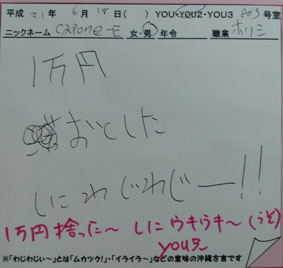 平成 21年 6月 18日( ) YOU・YOU2・YOU3 803号室
ニックネーム Capone-E 女・男 年令 職業 ホリミ
1万円
おとした
しにわじわじー!!
1万円捨った〜 しにウキウキ〜(うそ)
YOU兄
※「わじわじぃ〜」とは「ムカツク!」・「イライラ〜」などの意味の沖縄方言です